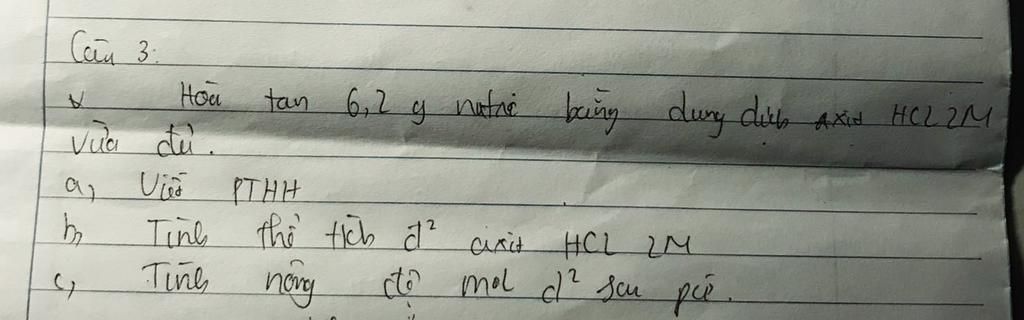 Câu 3:
Hoà tan 6,2 g natri bằng dung dịch axit HCL 2M
vừa đủ.
a, Viết PTHH
b, Tính thể tích d² axit HCL 2M
c, Tính nồng độ mol d² sau pứ.